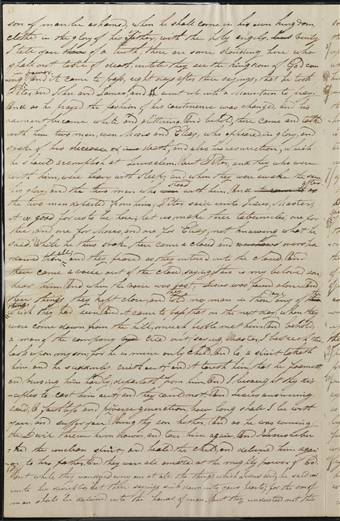 son of man be ashamed, when he shall come in his own kingdom
clothed in the glory of his Father, with the holy angels, verily
I tell you of a truth there are some standing here who
shall not taste of death, until they see the kingdom of God com
ing in power And it came to pass, eight days after these sayings, that he took
Peter, and John and James, and went up into a Mountain to pray.
And as he prayed the fashion of his countenance was changed, and his
raiment became white and glistening. And behold, there came and talked
with him two men, even Moses and Elias, who appeared in glory, and
spake of his death, and also his resurrection, which
he should accomplish at Jerusalem. But Peter, and they who were
with him, were heavy with sleep, and when they were awake they saw
his glory, and the two men who stood with him. And after
the two men departed from him, Peter said unto Jesus, Master,
it is good for us to be here; let us make three tabernacles; one for
thee, and one for Moses, and one for Elias; not knowing what he
said. While he thus spake, there came a cloud and over sha
dowed them all; and they feared as they entered into the cloud. And
there came a voice out of the cloud, saying, this is my beloved son;
hear him. And when the voice was past, Jesus was found alone. And
these things they kept close, and they told no man, in those days, any of the
things which they had seen. And it came to pass, that on the next day, when they
were come down from the hill, much people met him. And behold
a man of the company cried out, saying, Master, I beseech thee
look upon my son; for he is mine only child. And lo a spirit taketh
him and he suddenly crieth out; and it teareth him, that he foameth
and bruising him hardly, departeth from him. And I besought thy dis
ciples to cast him out; and they could not. And Jesus answering
said, O faithless and perverse generation, how long shall I be with
you, and suffer you? bring thy son hither. And as he was coming,
the Devil threw him down, and tare him again. And Jesus rebuked
the unclean spirit, and healed the child, and delivered him again
to his father. And they were all amazed at the mighty power of God
But while they wondered every one at all the things which Jesus did, he said
unto his disciples, Let these sayings sink down into your hearts; for the son of
man shall be delivered into the hands of men. But they understood not this